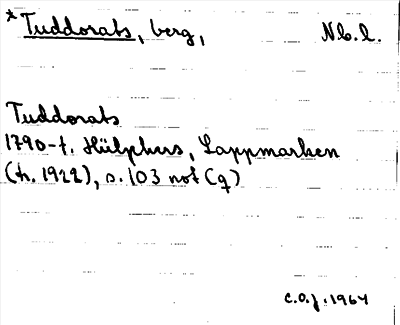 *Tuddorats, berg, Nb.l.
Tuddorats
1790-t. Hülphers, Lappmarken
(tr. 1922), s. 103 not (q)
C.O.J. 1964